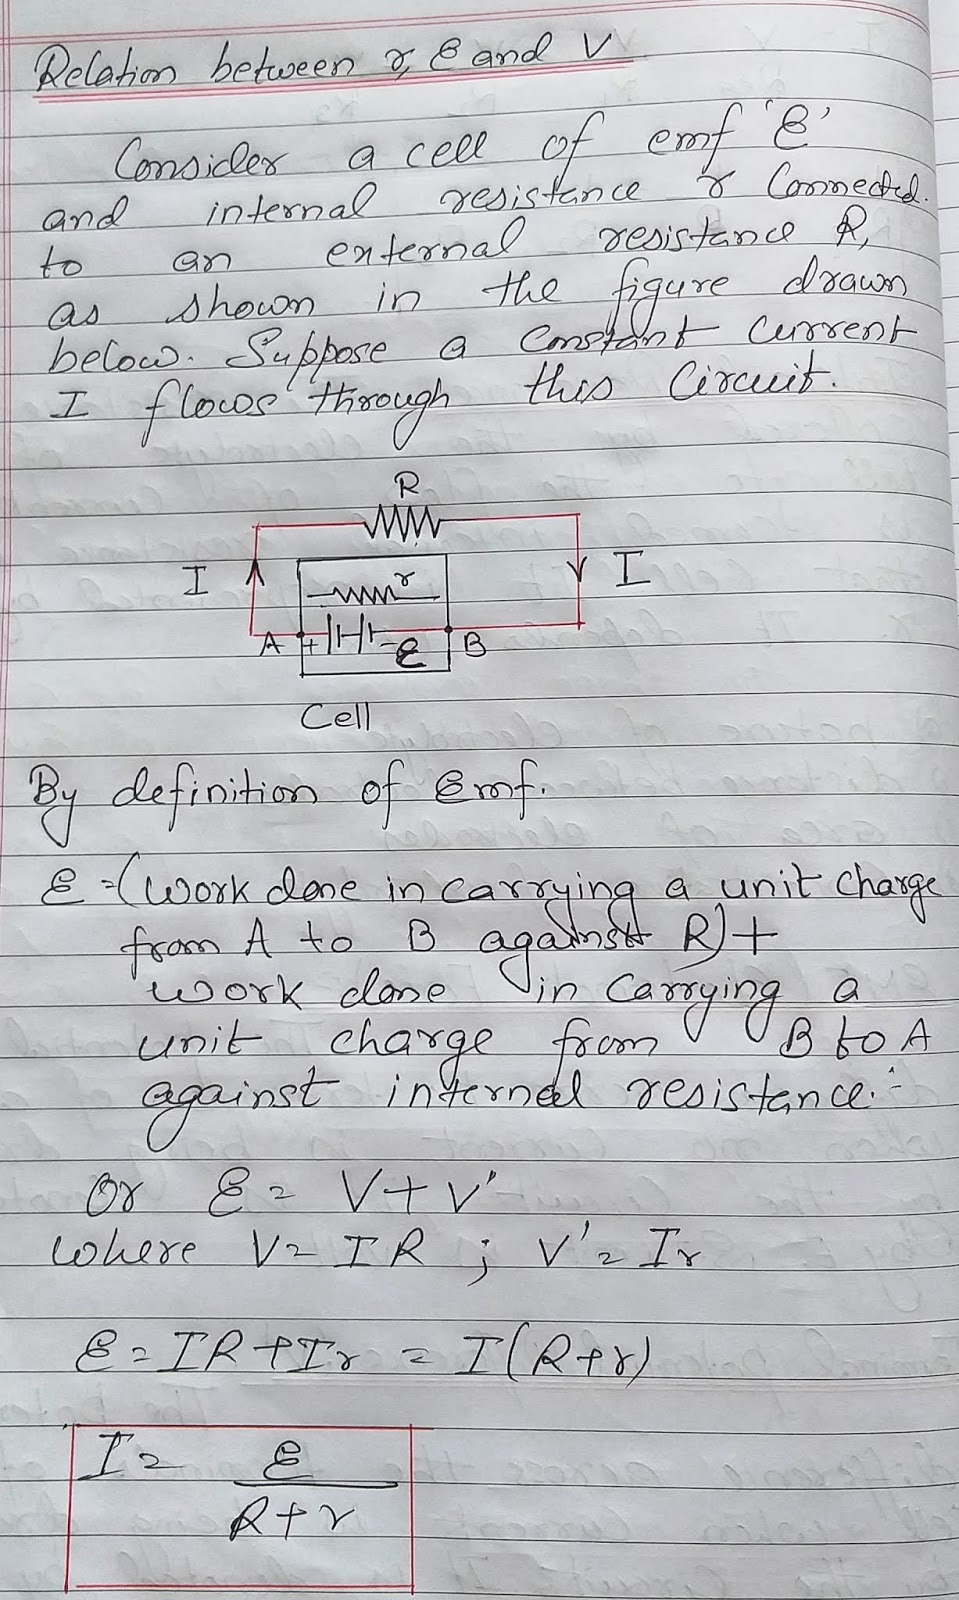 Relation between r, ε and V
Consider a cell of emf 'ε'
and internal resistance r Connected.
to an external resistance R,
as shown in the figure drawn
below. Suppose a Constant Current
I flows through this Circuit.
R
I
I
r
A + - ε B
Cell
By definition of emf.
ε = (work done in carrying a unit charge
from A to B against R) +
work done in carrying a
unit charge from B to A
against internal resistance.
Or ε = V + V'
where V = IR ; V' = Ir
ε = IR + Ir = I(R+r)
I = ε
R+r